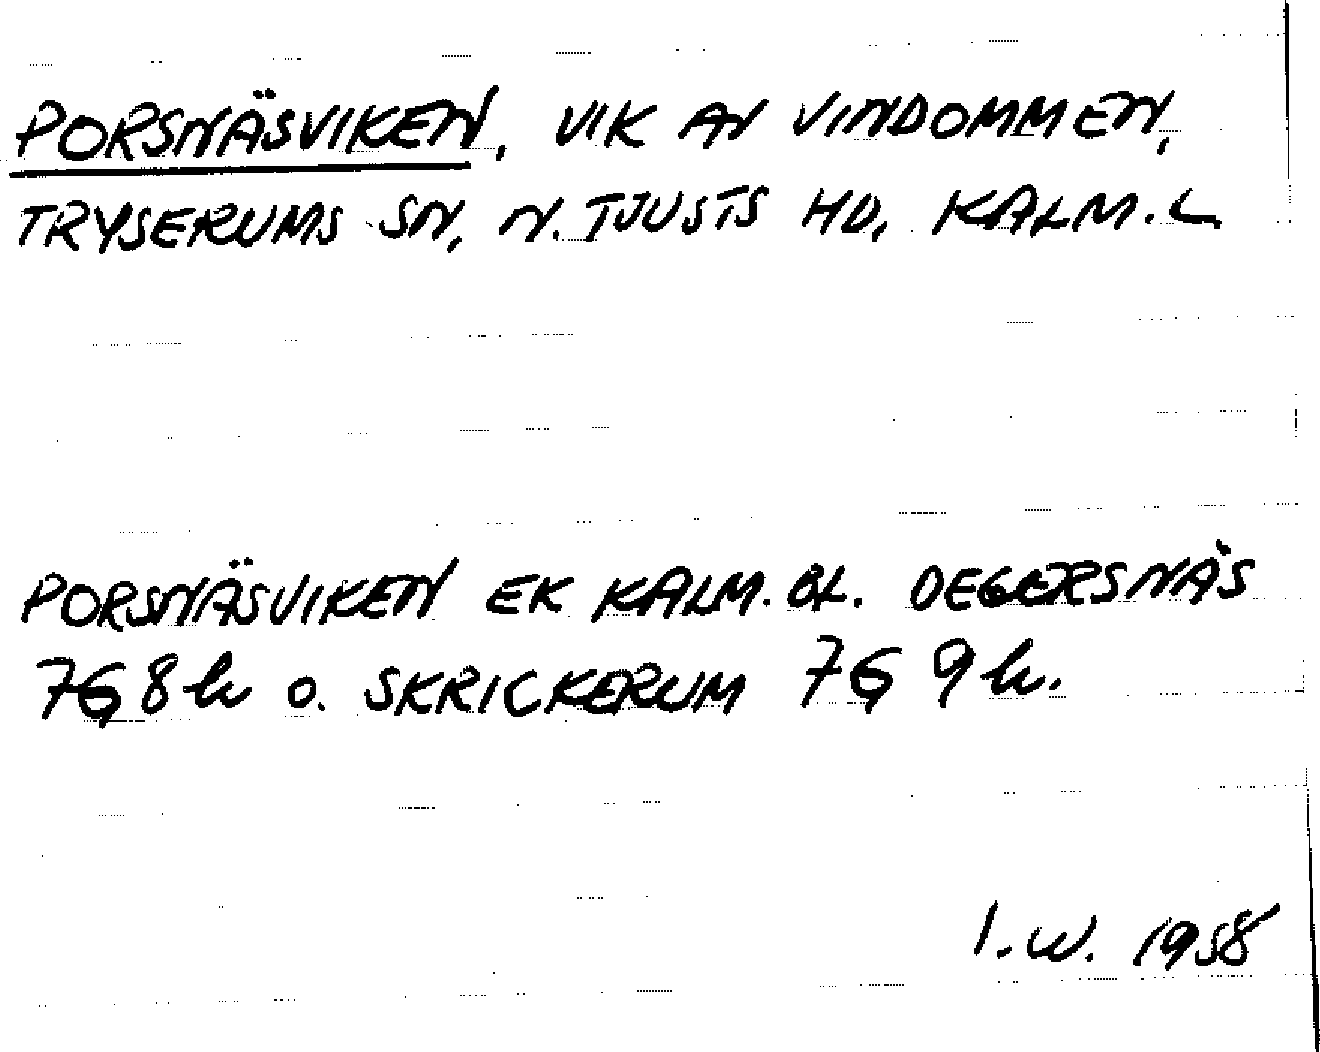 PORSNÄSVIKEN, VIK AV VINDOMMEN,
TRYSERUMS SN, N. TJUSTS HD, KALM. L
PORSNÄSVIKEN EK KALM. BL. DEGERSNÄS
7G 8h o. SKRICKERUM 7G 9h.
I.W. 1958